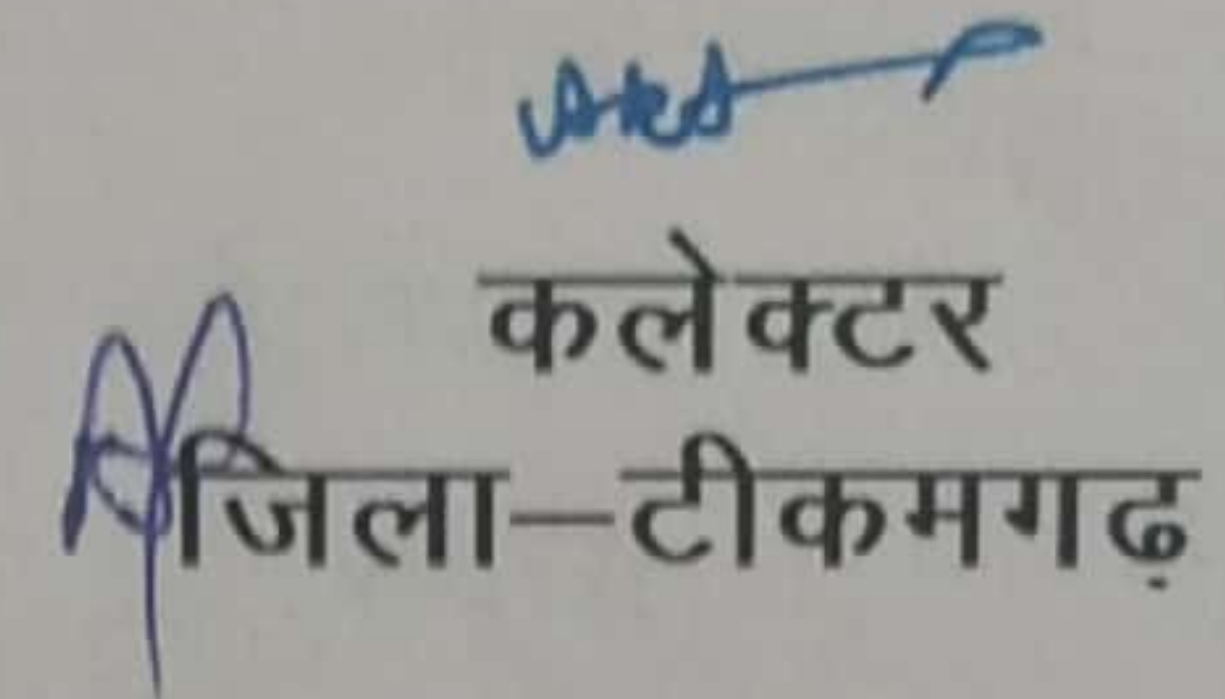 कलेक्टर
जिला–टीकमगढ़